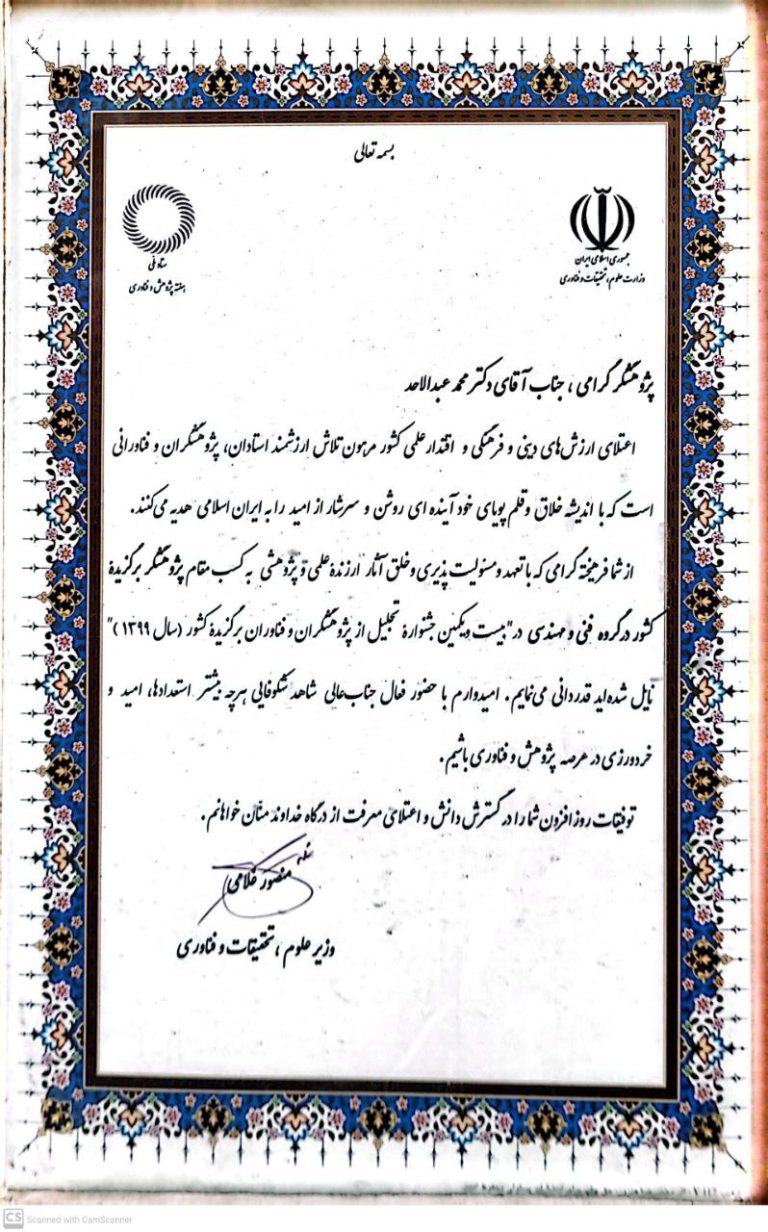 بسمه تعالی
جمهوری اسلامی ایران
وزارت علوم، تحقیقات و فناوری
ستاد ملی
هفته پژوهش و فناوری
پژوهشگر گرامی، جناب آقای دکتر محمد عبدالاحد
اعتلای ارزش‌های دینی و فرهنگی و اقتدار علمی کشور مرهون تلاش ارزشمند استادان، پژوهشگران و فناورانی
است که با اندیشه خلاق و قلم پویای خود آینده ای روشن و سرشار از امید را به ایران اسلامی هدیه می‌کنند.
از شما فرهیخته گرامی که با تعهد و مسئولیت پذیری و خلق آثار ارزنده علمی و پژوهشی به کسب مقام پژوهشگر برگزیدهٔ
کشور در گروه فنی و مهندسی در "بیست و یکمین جشنوارهٔ تجلیل از پژوهشگران و فناوران برگزیدهٔ کشور (سال ۱۳۹۹)"
نایل شده‌اید قدردانی می‌نمایم. امیدوارم با حضور فعال جناب‌عالی شاهد شکوفایی هرچه بیشتر استعدادها، امید و
خردورزی در عرصه پژوهش و فناوری باشیم.
توفیقات روزافزون شما را در گسترش دانش و اعتلای معرفت از درگاه خداوند منّان خواهانم.
منصور غلامی
وزیر علوم، تحقیقات و فناوری
CS Scanned with CamScanner